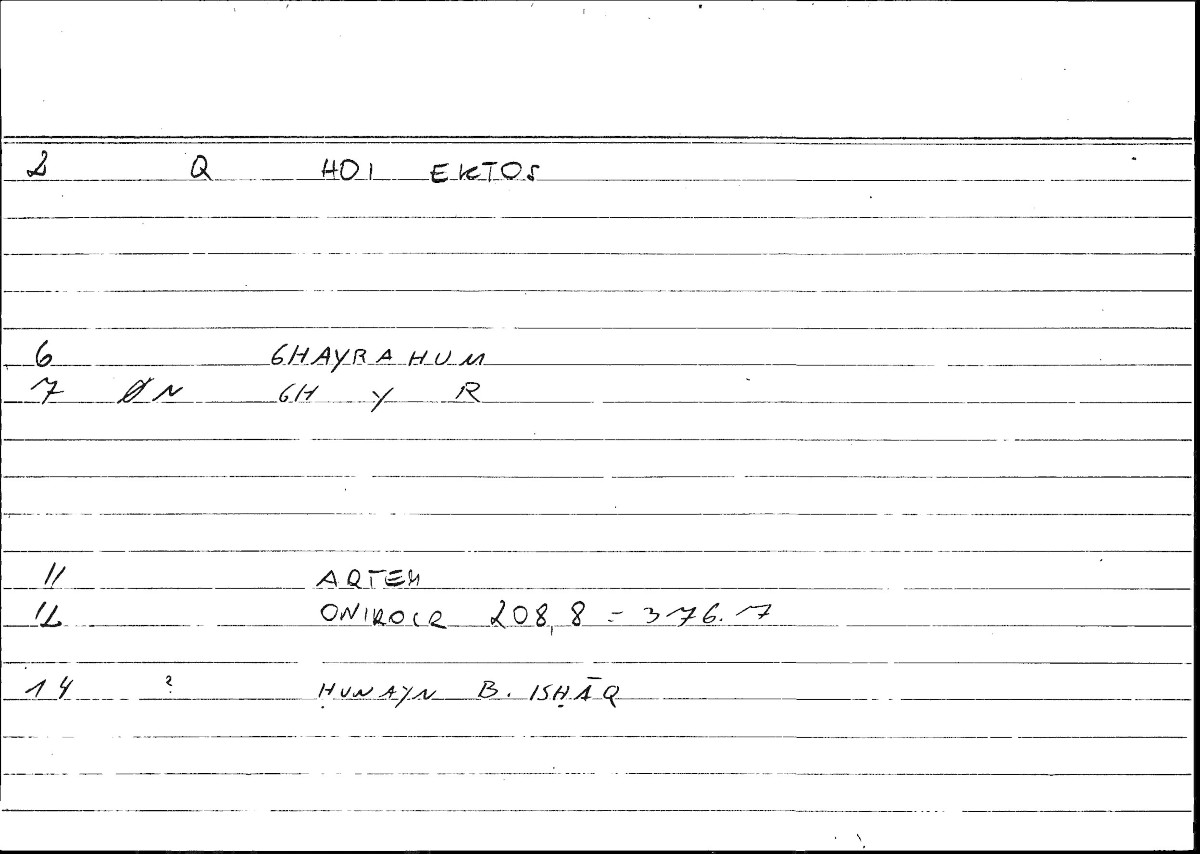 2 Q HOI EKTOS
6 GHAYRAHUM
7 ØN GH Y R
11 ARTEM
12 ONIROCR 208,8 = 376.7
14 ? ḤUNAYN B. ISḤĀQ